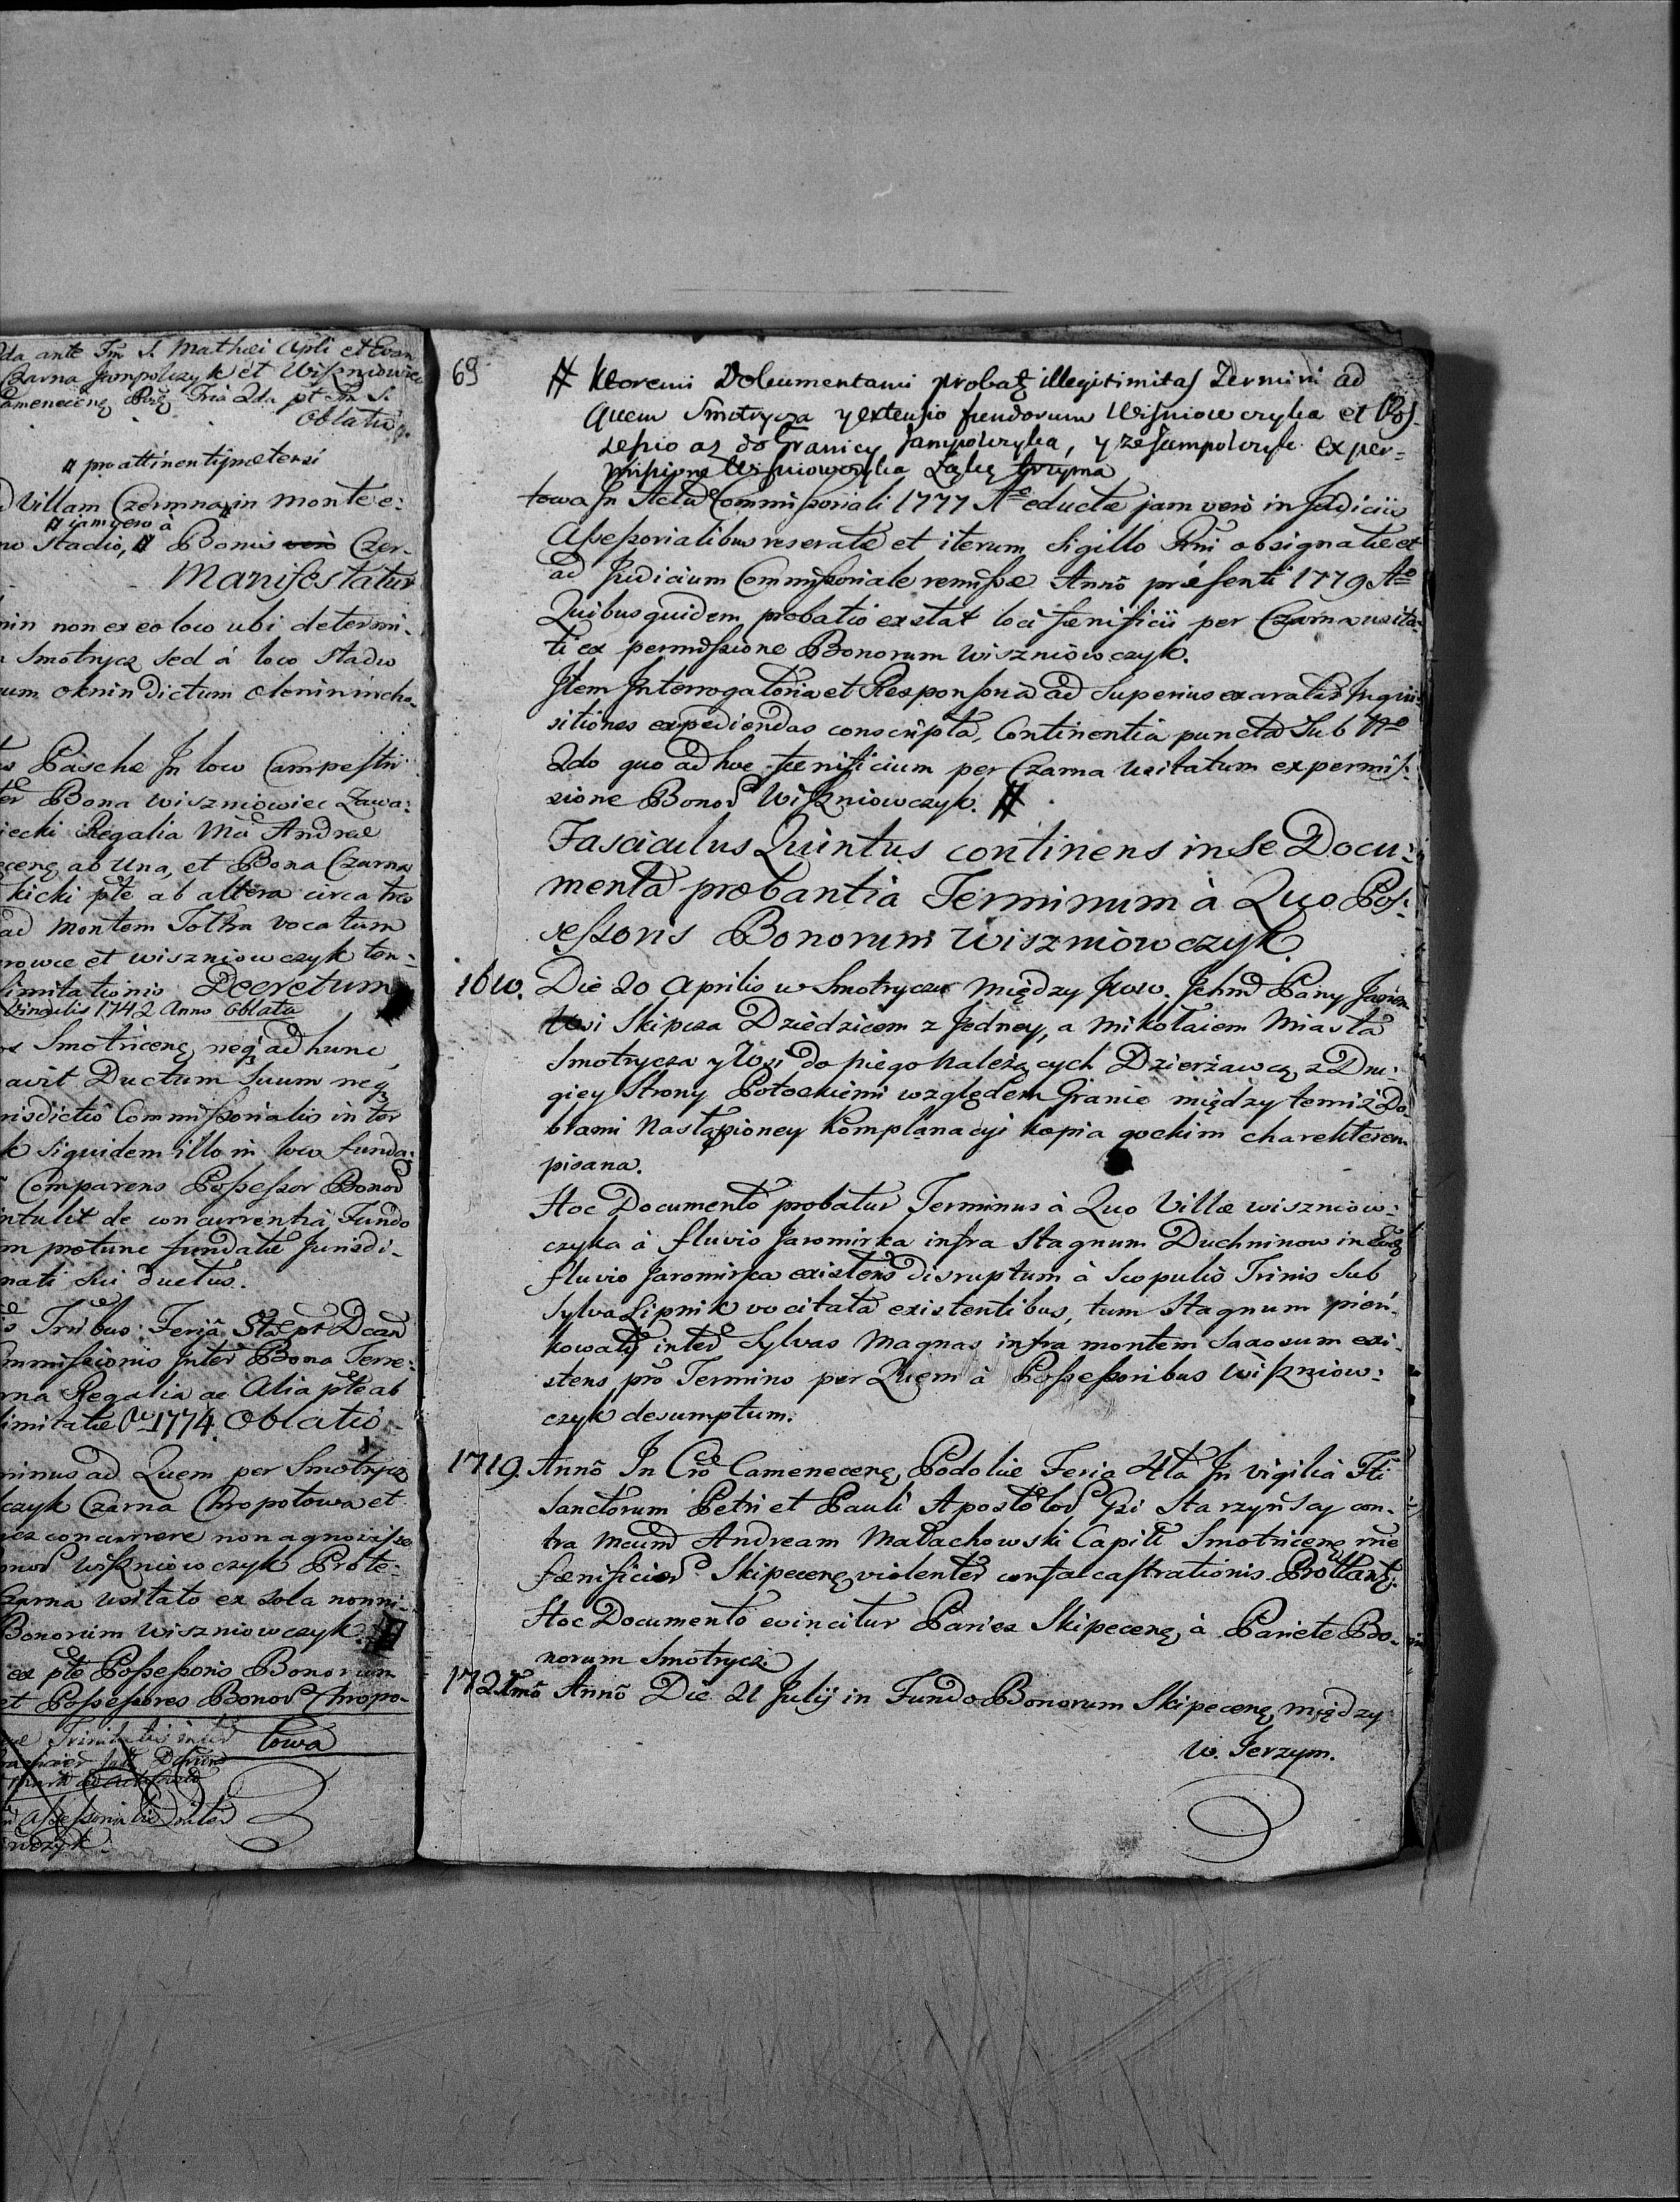 da ante Fm S. Mathæi Apli et Evan
Czarna Jampolczyk et Wiszniowiec
Camenecen Fria 2da pt Fm S.
Oblatio
# pro attinentij prætensi
Villam Czermna in monte e:
# jam vero à
Stadio, # Bonis vero Czer-
Manifestatur
min non ex eo loco ubi determi-
Smotrycz sed à loco Stadio
um oknin dictum
Pasche In loco Campestri
Bona Wiszniowiec Zawa:
iecki Regalia Andreæ
cenę ab Una, et Bona Czarna
kicki pte ab altera circa
ad Montem Toltra vocatum
rowce et Wiszniowczyk
limitationis Decretum
Vinculis 1742 Anno Oblata
Smotricenę neq ad hunc
avit Ductum Suum neq
risdictio Commissorialis inter
k siquidem illo in loco funda:
Comparens Possessor Bonor
ntulit de concurrentia Fundo
m protunc fundatæ Jurisdi-
nati sui ductus.
Tribus Feriâ Sta pt Dcam
mmissionis Inter Bona Terre:
na Regalia ac Alia pte ab
limitatæ 1774. Oblatio
minus ad Quem per Smotrycz
lczyk Czarna Chropotowa et
icz concurrere non agnovisse
onor Wiszniowczyk Prote-
Czarna Usitato ex sola nonni-
Bonorum Wiszniowczyk. #
ex pte Possessoris Bonorum
et Possessores Bonor Chropo-
towa
69
# ktoremi Dokumentami probatᵹ illegitimitas Termini ad
quem Smotrycza y extensio fundorum Wiszniowczyka et Pos-
sessio aż do Granicy Jampolczyka, y że Jampolczyk ex per-
missione Wiszniowczyka Łąkę trzyma
towa In Actu Commissoriali 1777 Aº eductæ jam verò in Judiciis
Assessorialibus reseratæ et iterum Sigillo Rni obsignatæ et
ad Judicium Commissoriale remissæ Annô præsenti 1779 Aº
Quibus quidem probatio exstat loci fænificii per Czarna usita-
ti ex permissione Bonorum Wiszniowczyk.
Item Interrogatoria et Responsoria ad Superius exaratas Inqui-
sitiones expediendas conscripta, Continentia puncta Sub Nº
2do quo ad hoc fænificium per Czarna Usitatum ex permis-
sione Bonor Wiszniowczyk. #
Fasciculus Quintus continens in Se Docu:
menta probantia Terminum à Quo Pos-
sessoris Bonorum Wiszniowczyk.
1610. Die 20 Aprilis w Smotryczu między Jww. Jchmć Pany Janem
Wsi Skipcza Dziedzicem z Jedney, a Mikołaiem Miasta
Smotrycza y Wsi do niego należących Dzierżawcą z Dru-
giey Strony Potockiemi względem Granic między temiż Do-
brami Nastąpioney Komplanacyi kopia gockim charekterem
pisana.
Hoc Documento probatur Terminus à Quo Villæ Wiszniow:
czyka à fluvio Jaromirka infra Stagnum Duchninow in
fluvio Jaromirka existens disruptum à Scopulis Trinis Sub
Sylva Lipnik vocitata existentibus, tum Stagnum pień-
kowaty inter Sylvas Magnas infra montem Saxosum exi-
stens pro Termino per Quem à Possessoribus Wiszniow:
czyk desumptum.
1719. Annô In Cro Camenecenę Podoliæ Feria 4ta In Vigilia Fti
Sanctorum Petri et Pauli Apostolor Gsi Starzyńscy con-
tra Mcum Andream Małachowski Capit Smotricenę rne
fænificior Skipecenę violenter
Hoc Documento evincitur Paries Skipecenę à Pariete Bo-
norum Smotrycz.
172 Annô Die 21 Julij in Fundo Bonorum Skipecenę między
W. Jerzym.